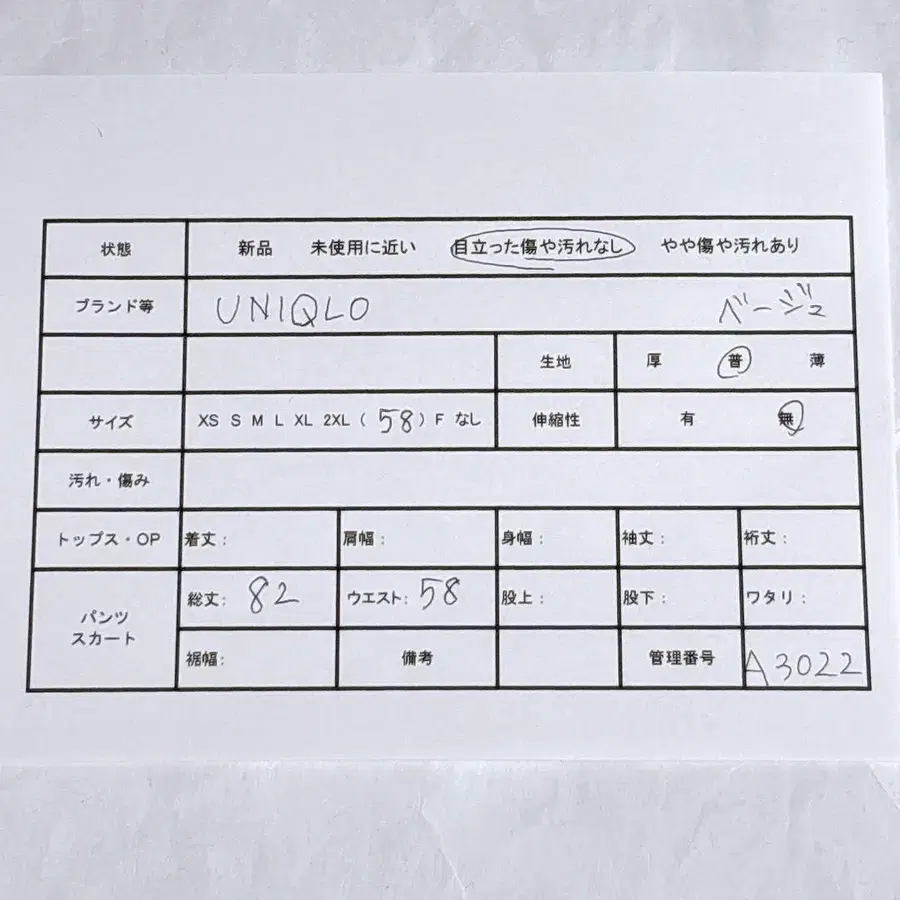 状態 新品 未使用に近い 目立った傷や汚れなし やや傷や汚れあり
ブランド等 UNIQLO ベージュ
生地 厚 普 薄
サイズ XS S M L XL 2XL ( 58 ) F なし 伸縮性 有 無
汚れ・傷み
トップス・OP 着丈: 肩幅: 身幅: 袖丈: 裄丈:
パンツ
スカート
総丈: 82 ウエスト: 58 股上: 股下: ワタリ:
裾幅: 備考 管理番号 A3022